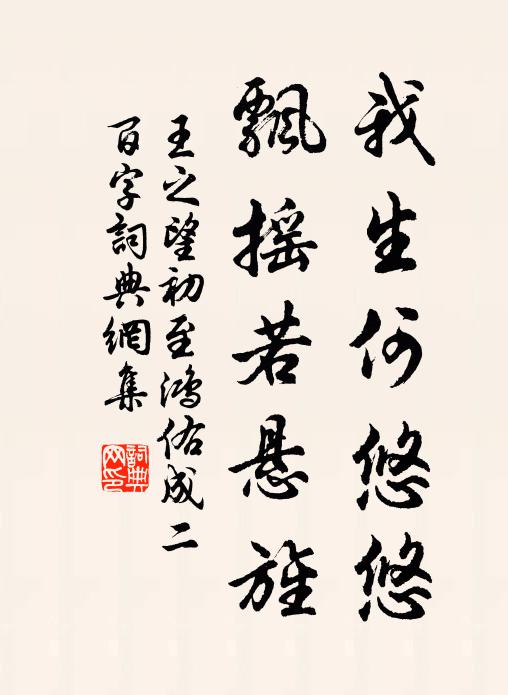 我生何悠悠
飘摇若悬旌
王之望初至鴻佑成二
百字詞典網集
詞典
网印